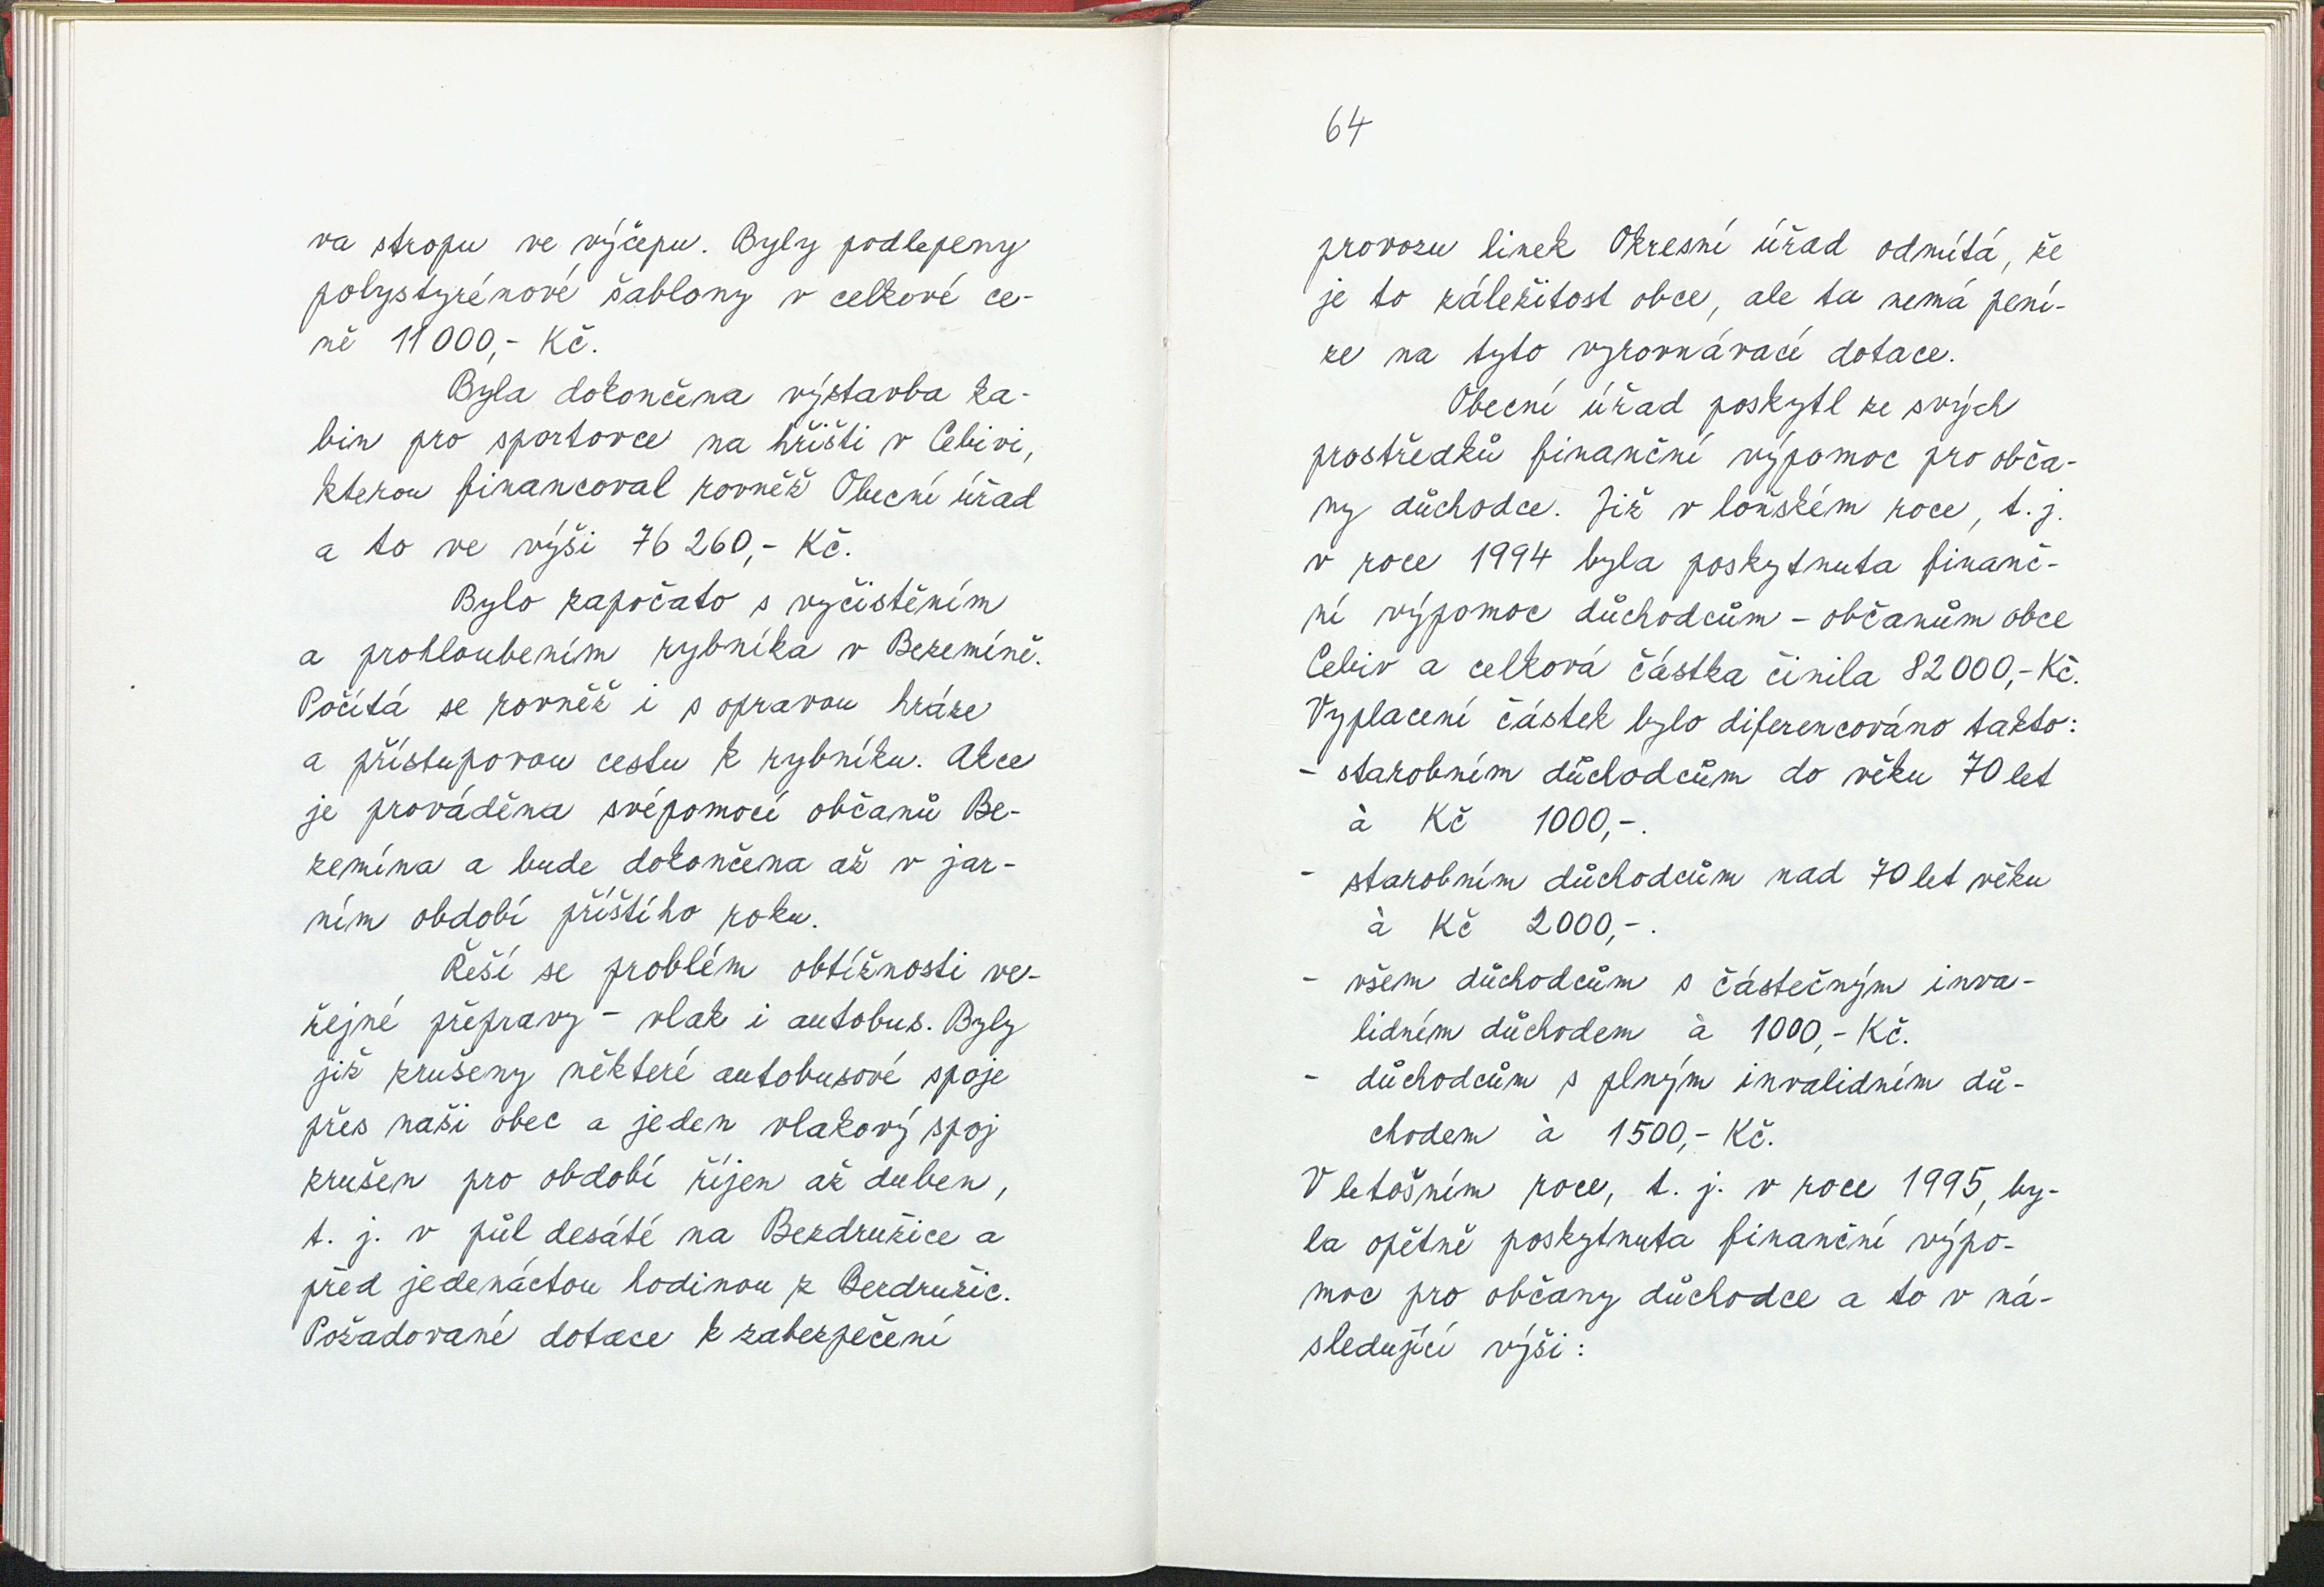 va stropu ve výčepu. Byly podlepeny
polystyrénové šablony v celkové ce-
ně 11 000,- Kč.
Byla dokončena výstavba ka-
bin pro sportovce na hřišti v Cebivi,
kterou financoval rovněž Obecní úřad
a to ve výši 76 260,- Kč.
Bylo započato s vyčistěním
a prohloubením rybníka v Bezemíně.
Počítá se rovněž i s opravou hráze
a přístupovou cestu k rybníku. Akce
je prováděna svépomocí občanů Be-
zemína a bude dokončena až v jar-
ním období příštího roku.
Řeší se problém obtížnosti ve-
řejné přepravy - vlak i autobus. Byly
již zrušeny některé autobusové spoje
přes naši obec a jeden vlakový spoj
zrušen pro období říjen až duben,
t. j. v půl desáté na Bezdružice a
před jedenáctou hodinou z Bezdružic.
Požadované dotace k zabezpečení
64
provozu linek Okresní úřad odmítá, že
je to záležitost obce, ale ta nemá pení-
ze na tyto vyrovnávací dotace.
Obecní úřad poskytl ze svých
prostředků finanční výpomoc pro obča-
ny důchodce. Již v loňském roce, t. j.
v roce 1994 byla poskytnuta finanč-
ní výpomoc důchodcům - občanům obce
Cebiv a celková částka činila 82 000,- Kč.
Vyplacení částek bylo diferencováno takto:
- starobním důchodcům do věku 70 let
à Kč 1000,-.
- starobním důchodcům nad 70 let věku
à Kč 2000,-.
- všem důchodcům s částečným inva-
lidním důchodem à 1000,- Kč.
- důchodcům s plným invalidním dů-
chodem à 1500,- Kč.
V letošním roce, t. j. v roce 1995, by-
la opětně poskytnuta finanční výpo-
moc pro občany důchodce a to v ná-
sledující výši: